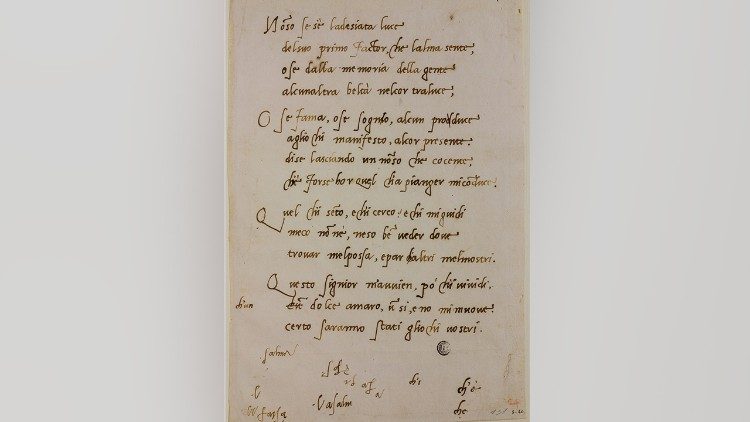 Nōso se s'è ladesiata luce
delsuo primo factor, che lalma sente,
ose dalla memoria della gente
alcunaltra beltà nelcor traluce,
O se fama, ose sognio, alcun prodduce
aglio chi manifesto, alcor presente.
dise lasciando un nōso che cocente,
ch'è forse hor quel cha pianger micōduce.
Quel chi sēto, e chi cerco: e chi miguidi
meco nōnè, neso bē veder dove
trovar melpossa, e par daltri melmostri.
Questo signior mavvien, po chi vividi,
chun
dolce amaro, ū si, e no mi muove
certo saranno stati gliochi vostri.